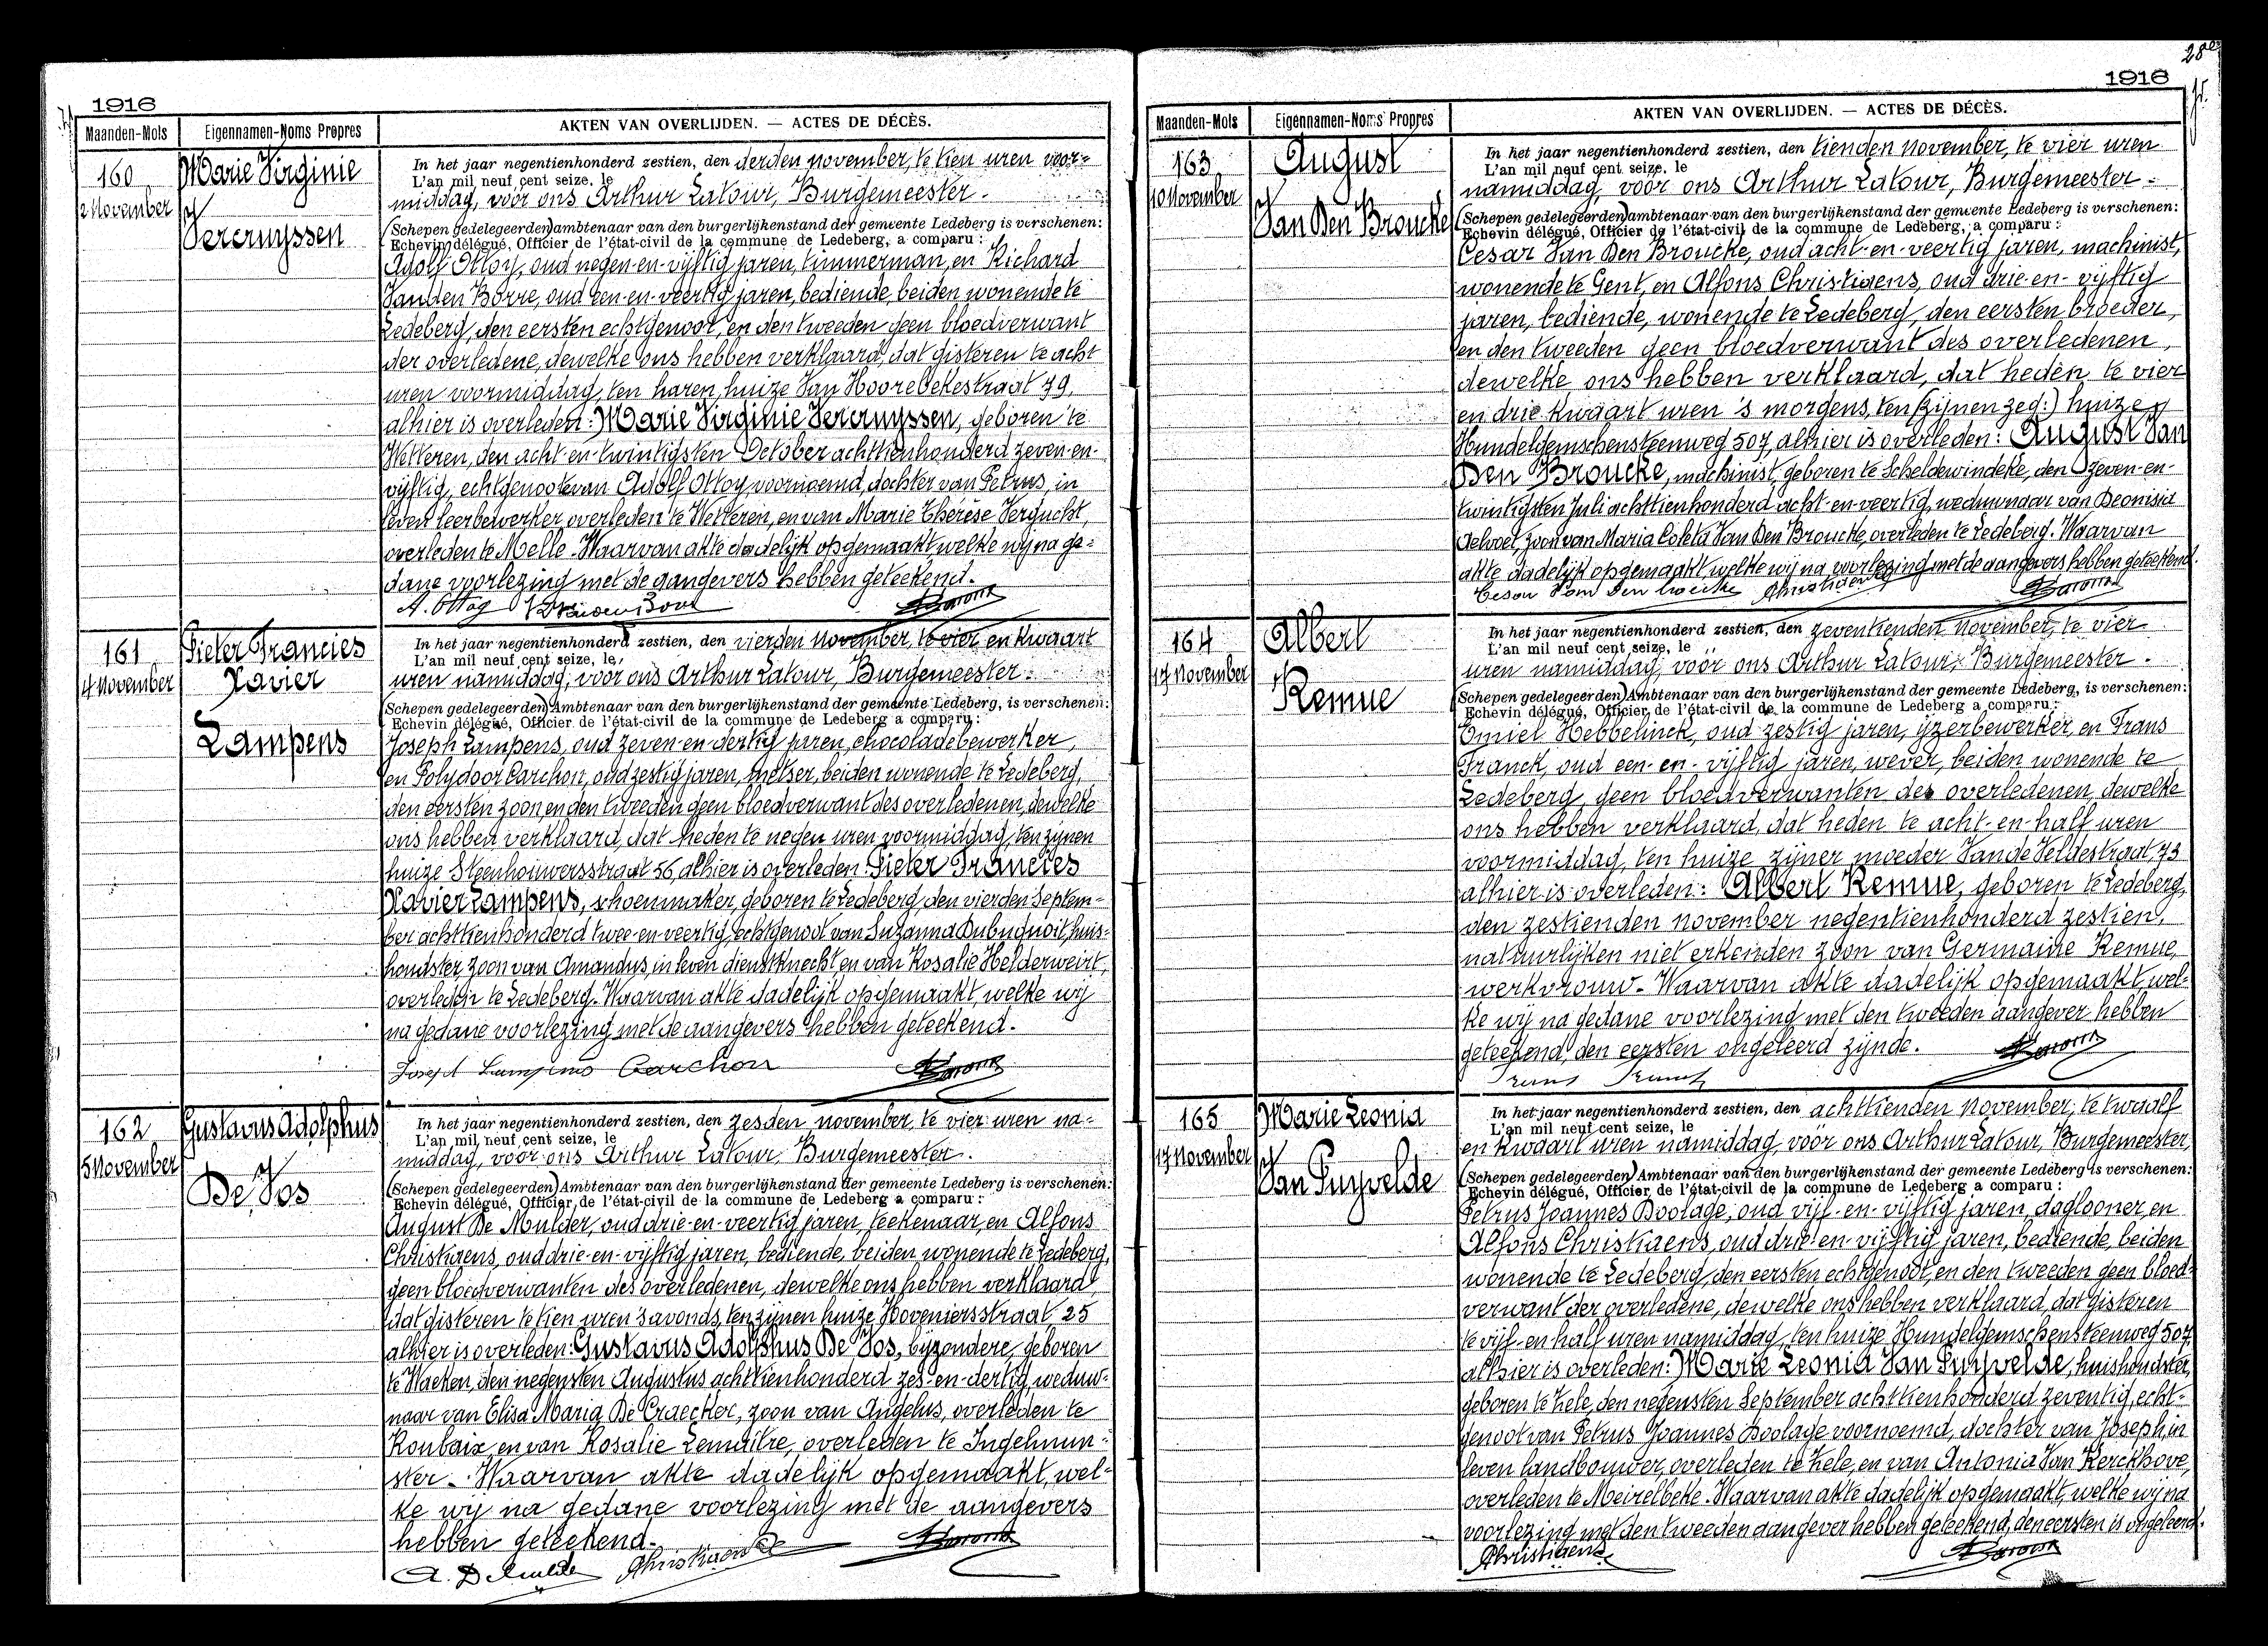 1916
Maanden-Mois Eigennamen-Noms Propres AKTEN VAN OVERLIJDEN. — ACTES DE DÉCÈS.
160
2 November
Marie Virginie
Vercruyssen
In het jaar negentienhonderd zestien, den derden november, te tien uren voor-
L'an mil neuf cent seize, le
middag, vóór ons Arthur Latour, Burgemeester.
(Schepen gedelegeerden) ambtenaar van den burgerlijkenstand der gemeente Ledeberg is verschenen:
Echevin délégué, Officier de l'état-civil de la commune de Ledeberg, a comparu:
Adolf Ottoy, oud negen-en-vijftig jaren, timmerman, en Richard
Vanden Borre, oud een-en-veertig jaren, bediende, beiden wonende te
Ledeberg, den eersten echtgenoot, en den tweeden geen bloedverwant
der overledene, dewelke ons hebben verklaard, dat gisteren te acht
uren voormiddag, ten haren huize Van Hoorebekestraat 79,
alhier is overleden: Marie Virginie Vercruyssen, geboren te
Wetteren, den acht-en-twintigsten October achttienhonderd zeven-en-
vijftig, echtgenoote van Adolf Ottoy, voornoemd, dochter van Petrus, in
leven leerbewerker, overleden te Wetteren, en van Marie Thérèse Vergucht,
overleden te Melle. Waarvan akte dadelijk opgemaakt welke wij na ge-
dane voorlezing met de aangevers hebben geteekend.
A. Ottoy
161
4 November
Pieter Francies
Xavier
Lampens
In het jaar negentienhonderd zestien, den vierden november, te vier en kwaart
L'an mil neuf cent seize, le
uren namiddag, vóór ons Arthur Latour, Burgemeester.
(Schepen gedelegeerden) Ambtenaar van den burgerlijkenstand der gemeente Ledeberg, is verschenen:
Echevin délégué, Officier de l'état-civil de la commune de Ledeberg a comparu:
Joseph Lampens, oud zeven-en-dertig jaren, chocoladebewerker,
en Polydoor Carchon, oud zestig jaren, metser, beiden wonende te Ledeberg,
den eersten zoon, en den tweeden geen bloedverwant des overledenen, dewelke
ons hebben verklaard, dat heden te negen uren voormiddag, ten zijnen
huize Steenhouwersstraat 56, alhier is overleden: Pieter Francies
Xavier Lampens, schoenmaker, geboren te Ledeberg den vierden Septem-
ber achttienhonderd twee-en-veertig, echtgenoot van Suzanna Dubuquoit, huis-
houdster, zoon van Amandus, in leven dienstknecht en van Rosalie Helderweirt,
overleden te Ledeberg. Waarvan akte dadelijk opgemaakt, welke wij
na gedane voorlezing met de aangevers hebben geteekend.
Josept Lampens Carchon
162
5 November
Gustavus Adolphus
De Vos
In het jaar negentienhonderd zestien, den zesden november, te vier uren na-
L'an mil neuf cent seize, le
middag, vóór ons Arthur Latour, Burgemeester.
(Schepen gedelegeerden) Ambtenaar van den burgerlijkenstand der gemeente Ledeberg is verschenen:
Echevin délégué, Officier de l'état-civil de la commune de Ledeberg a comparu:
August De Mulder, oud drie-en-veertig jaren, teekenaar, en Alfons
Christiaens, oud drie-en-vijftig jaren, bediende, beiden wonende te Ledeberg,
geen bloedverwanten des overledenen, dewelke ons hebben verklaard
dat gisteren te tien uren 's avonds, ten zijnen huize Hoveniersstraat, 25
alhier is overleden: Gustavus Adolphus De Vos, bijzondere, geboren
te Wacken, den negensten Augustus achttienhonderd zes-en-dertig, weduw-
naar van Elisa Maria De Craecker, zoon van Angelus, overleden te
Roubaix, en van Rosalie Lemaître, overleden te Ingelmun-
ster. Waarvan akte dadelijk opgemaakt, wel-
ke wij na gedane voorlezing met de aangevers
hebben geteekend.
A. De Mulder Christiaens
28e
1916
Maanden-Mois Eigennamen-Noms Propres AKTEN VAN OVERLIJDEN. — ACTES DE DÉCÈS.
163
10 November
August
Van Den Broucke
In het jaar negentienhonderd zestien, den tienden november, te vier uren
L'an mil neuf cent seize, le
namiddag, vóór ons Arthur Latour, Burgemeester.
(Schepen gedelegeerden) ambtenaar van den burgerlijkenstand der gemeente Ledeberg is verschenen:
Echevin délégué, Officier de l'état-civil de la commune de Ledeberg, a comparu:
Cesar Van Den Broucke, oud acht-en-veertig jaren, machinist,
wonende te Gent, en Alfons Christiaens, oud drie-en-vijftig
jaren, bediende, wonende te Ledeberg, den eersten broeder,
en den tweeden geen bloedverwant des overledenen,
dewelke ons hebben verklaard, dat heden te vier
en drie kwaart uren 's morgens, ten (zijnen zeg:) huize
Hundelgemschensteenweg 507, alhier is overleden: August Van
Den Broucke, machinist, geboren te Scheldewindeke, den zeven-en-
twintigsten Juli achttienhonderd acht-en-veertig, weduwnaar van Deonisia
Gelvoet, zoon van Maria Coleta Van Den Broucke, overleden te Ledeberg. Waarvan
akte dadelijk opgemaakt welke wij na voorlezing met de aangevers hebben geteekend.
Cesar Van Den broucke Christiaens
164
17 November
Albert
Remue
In het jaar negentienhonderd zestien, den zeventienden november, te vier
L'an mil neuf cent seize, le
uren namiddag, vóór ons Arthur Latour, Burgemeester.
(Schepen gedelegeerden) Ambtenaar van den burgerlijkenstand der gemeente Ledeberg, is verschenen:
Echevin délégué, Officier de l'état-civil de la commune de Ledeberg a comparu:
Emiel Hebbelinck, oud zestig jaren, ijzerbewerker, en Frans
Franck, oud een-en-vijftig jaren, wever, beiden wonende te
Ledeberg, geen bloedverwanten des overledenen, dewelke
ons hebben verklaard, dat heden te acht-en-half uren
voormiddag, ten huize zijner moeder Van de Veldestraat, 73
alhier is overleden: Albert Remue, geboren te Ledeberg,
den zestienden november negentienhonderd zestien,
natuurlijken niet erkenden zoon van Germaine Remue,
werkvrouw. Waarvan akte dadelijk opgemaakt, wel-
ke wij na gedane voorlezing met den tweeden aangever hebben
geteekend, den eersten ongeleerd zijnde.
Frans Franck
165
17 November
Marie Leonia
Van Puyvelde
In het jaar negentienhonderd zestien, den achttienden november, te twaalf
L'an mil neuf cent seize, le
en kwaart uren namiddag, vóór ons Arthur Latour, Burgemeester,
(Schepen gedelegeerden) Ambtenaar van den burgerlijkenstand der gemeente Ledeberg is verschenen:
Echevin délégué, Officier de l'état-civil de la commune de Ledeberg a comparu:
Petrus Joannes Boolage, oud vijf-en-vijftig jaren, daglooner en
Alfons Christiaens, oud drie-en-vijftig jaren, bediende, beiden
wonende te Ledeberg, den eersten echtgenoot, en den tweeden geen bloed-
verwant der overledene, dewelke ons hebben verklaard, dat gisteren
te vijf-en half uren namiddag, ten huize Hundelgemschensteenweg 507
alhier is overleden: Marie Leonia Van Puyvelde, huishoudster,
geboren te Zele, den negensten September achttienhonderd zeventig, echt-
genoot van Petrus Joannes Boolage voornoemd, dochter van Joseph, in
leven landbouwer, overleden te Zele, en van Antonia Van Kerckhove,
overleden te Meirelbeke. Waarvan akte dadelijk opgemaakt, welke wij na
voorlezing met den tweeden aangever hebben geteekend, den eersten is ongeleerd.
Christiaens